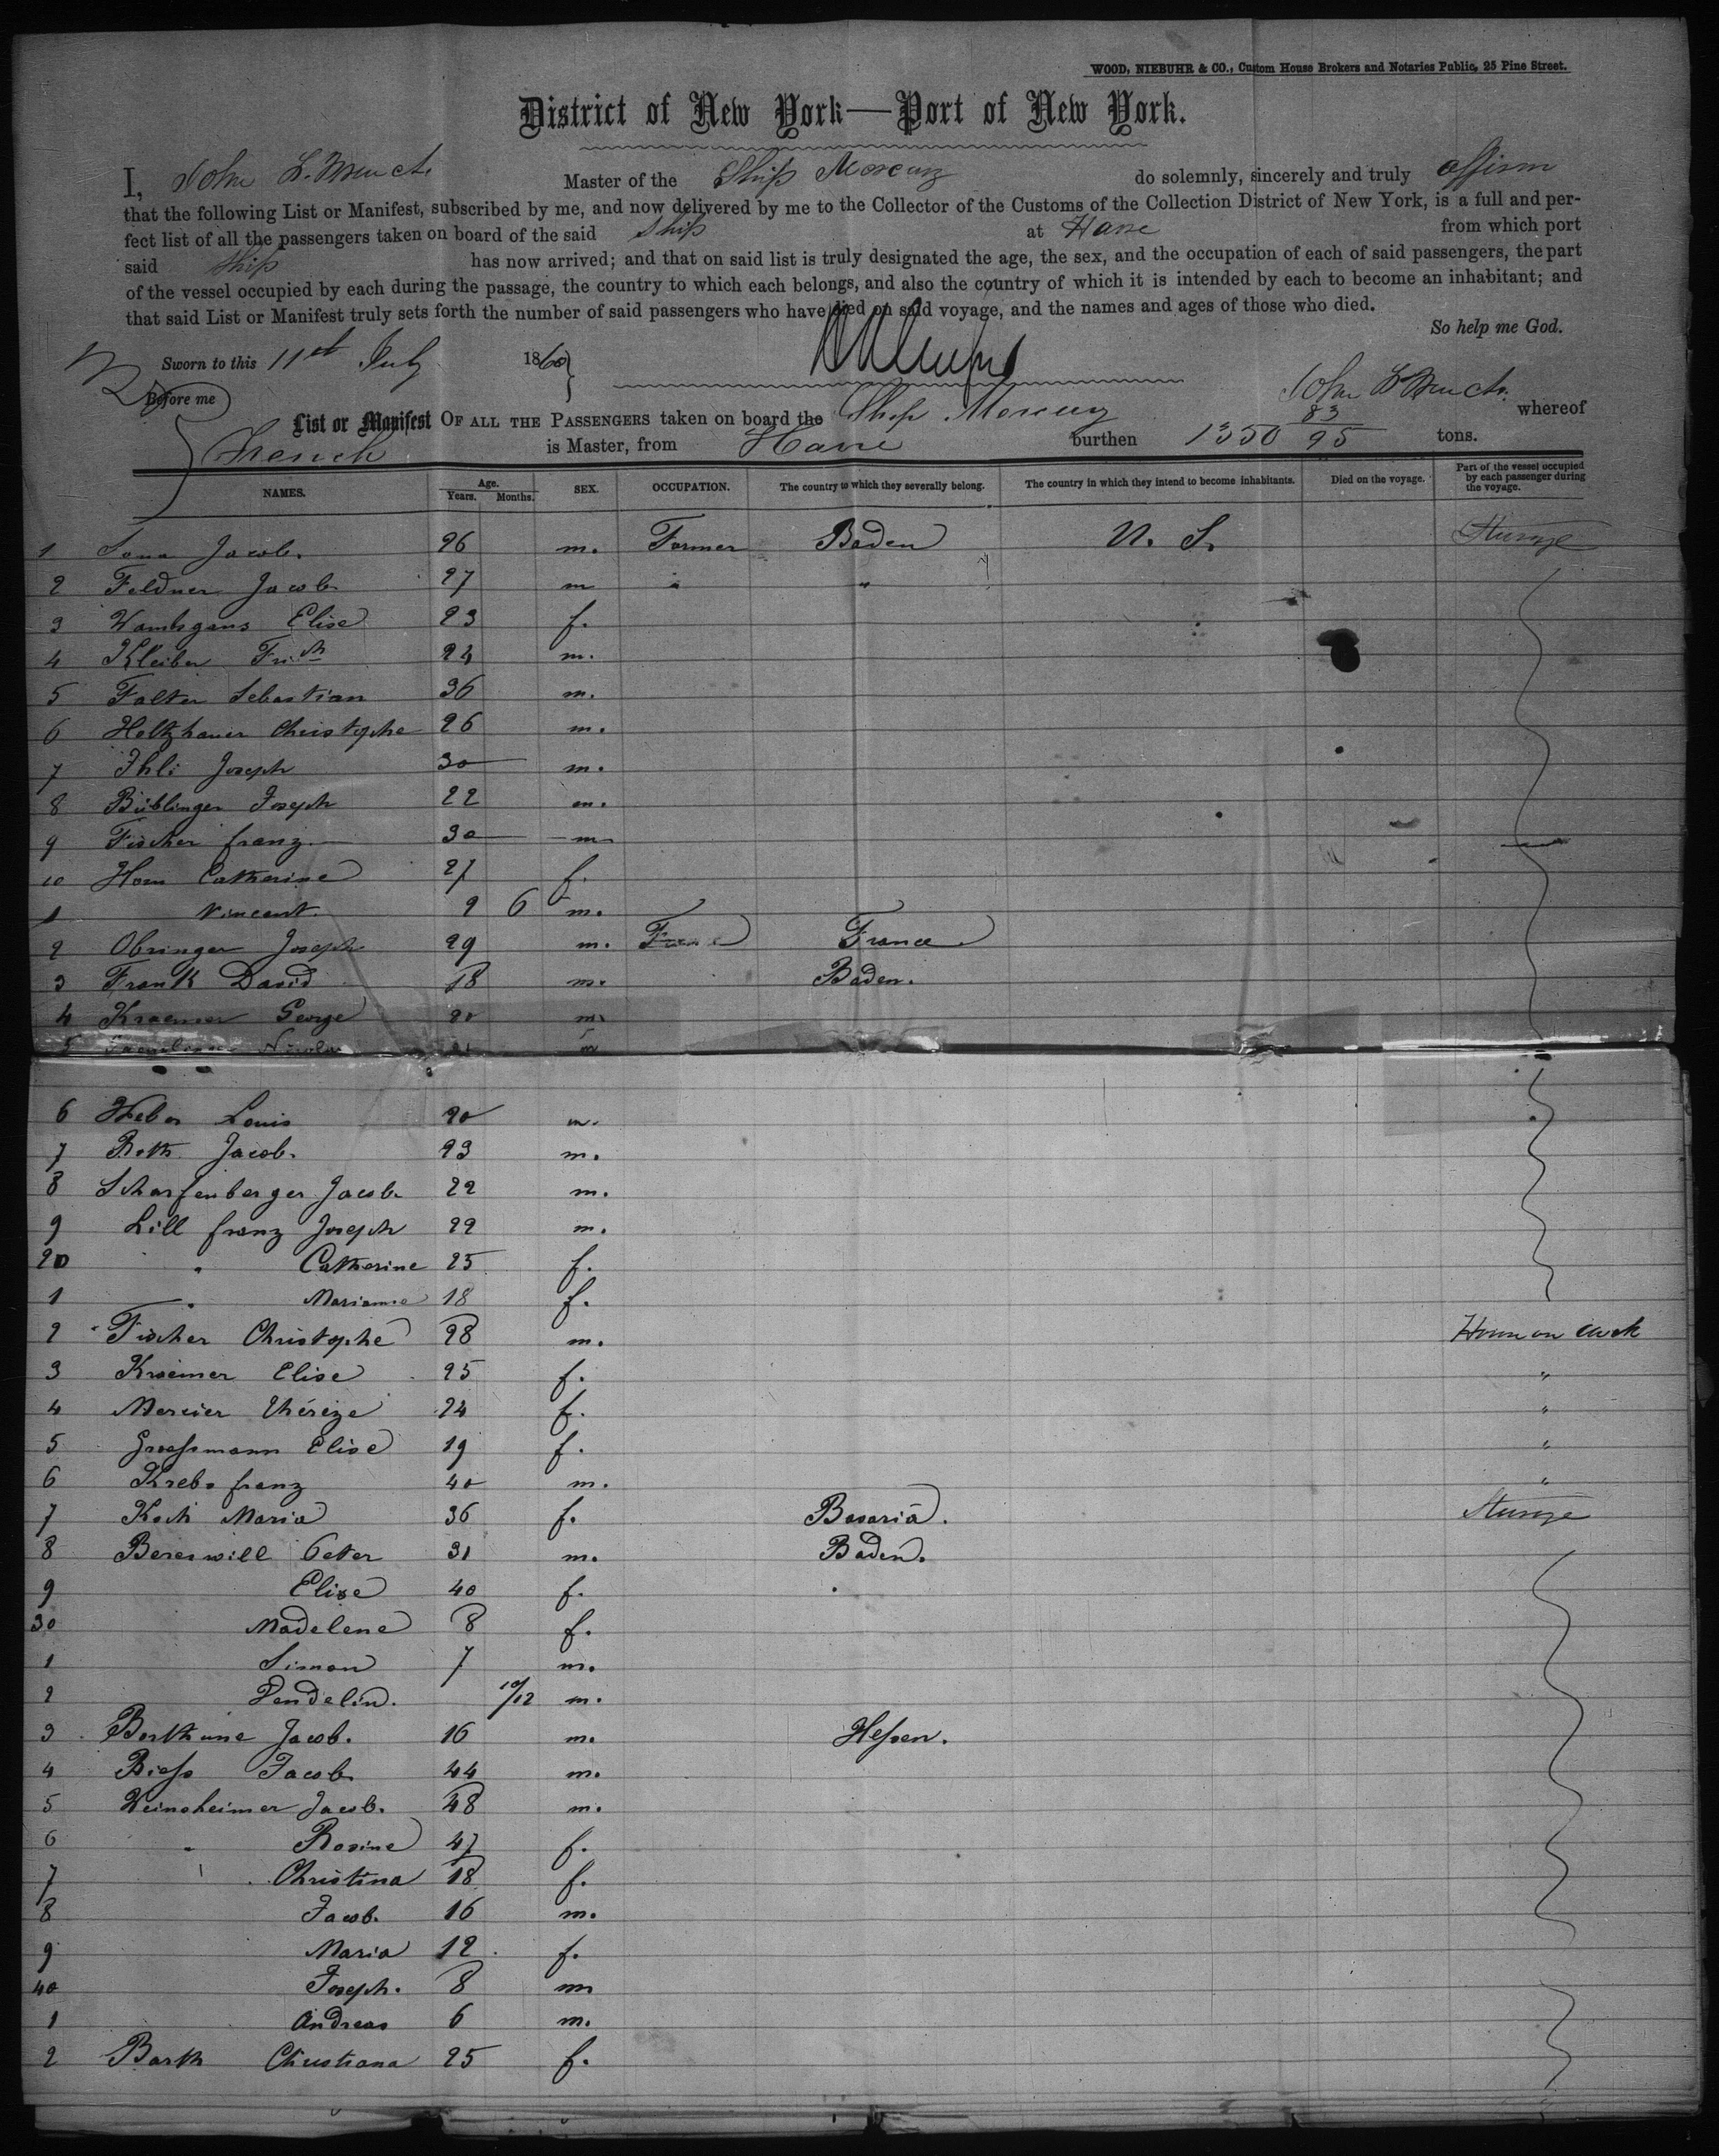 WOOD, NIEBUHR & CO., Custom House Brokers and Notaries Public, 25 Pine Street.
District of New York—Port of New York.
I, John Master of the Ship Mercury do solemnly, sincerely and truly affirm
that the following List or Manifest, subscribed by me, and now delivered by me to the Collector of the Customs of the Collection District of New York, is a full and per-
fect list of all the passengers taken on board of the said Ship at Havre from which port
said Ship has now arrived; and that on said list is truly designated the age, the sex, and the occupation of each of said passengers, the part
of the vessel occupied by each during the passage, the country to which each belongs, and also the country of which it is intended by each to become an inhabitant; and
that said List or Manifest truly sets forth the number of said passengers who have died on said voyage, and the names and ages of those who died.
So help me God.
Sworn to this 11th July 1860
Before me
John
List or Manifest OF ALL THE PASSENGERS taken on board the Ship Mercury whereof
French is Master, from Havre burthen 1350 83/95 tons.
NAMES. Age. Years. Months. SEX. OCCUPATION. The country to which they severally belong. The country in which they intend to become inhabitants. Died on the voyage. Part of the vessel occupied by each passenger during the voyage.
1 Jacob. 26 m. Farmer Baden U. S. Steerage
2 Feldner Jacob 27 m " "
3 Wambsgans Elise 23 f.
4 Kleiber Frich 24 m.
5 Falter Sebastian 36 m.
6 Holtzhauer Christophe 26 m.
7 Ihli Joseph 30 m.
8 Büblinger Joseph 22 m.
9 Fischer franz 30 m
10 Horn Catherine 27 f.
1 Vincent. 2 6 m.
2 Obringer Joseph 29 m. France
3 Frank David 18 m. Baden.
4 Kraemer George 20 m.
5 Nicolas 21 m
6 Weber Louis 20 m.
7 Roth Jacob. 23 m.
8 Scharfenberger Jacob 22 m.
9 Lill franz Joseph 22 m.
20 " Catherine 25 f.
1 " Marianne 18 f.
2 Fischer Christophe 28 m. House on deck
3 Kraemer Elise 25 f. "
4 Mercier Théréze 24 f. "
5 Grossmann Elise 19 f. "
6 Krebs franz 40 m. "
7 Koch Maria 36 f. Bavaria. Steerage
8 Bereswill Peter 31 m. Baden.
9 Elise 40 f.
30 Madelene 8 f.
1 Simon 7 m.
2 Vendelin. 10/12 m.
3 Berthune Jacob. 16 m. Hessen.
4 Biess Jacob 44 m.
5 Weinsheimer Jacob. 48 m.
6 " Rosine 47 f.
7 Christina 18 f.
8 Jacob. 16 m.
9 Maria 12 f.
40 Joseph. 8 m
1 Andreas 6 m.
2 Barth Christiana 25 f.